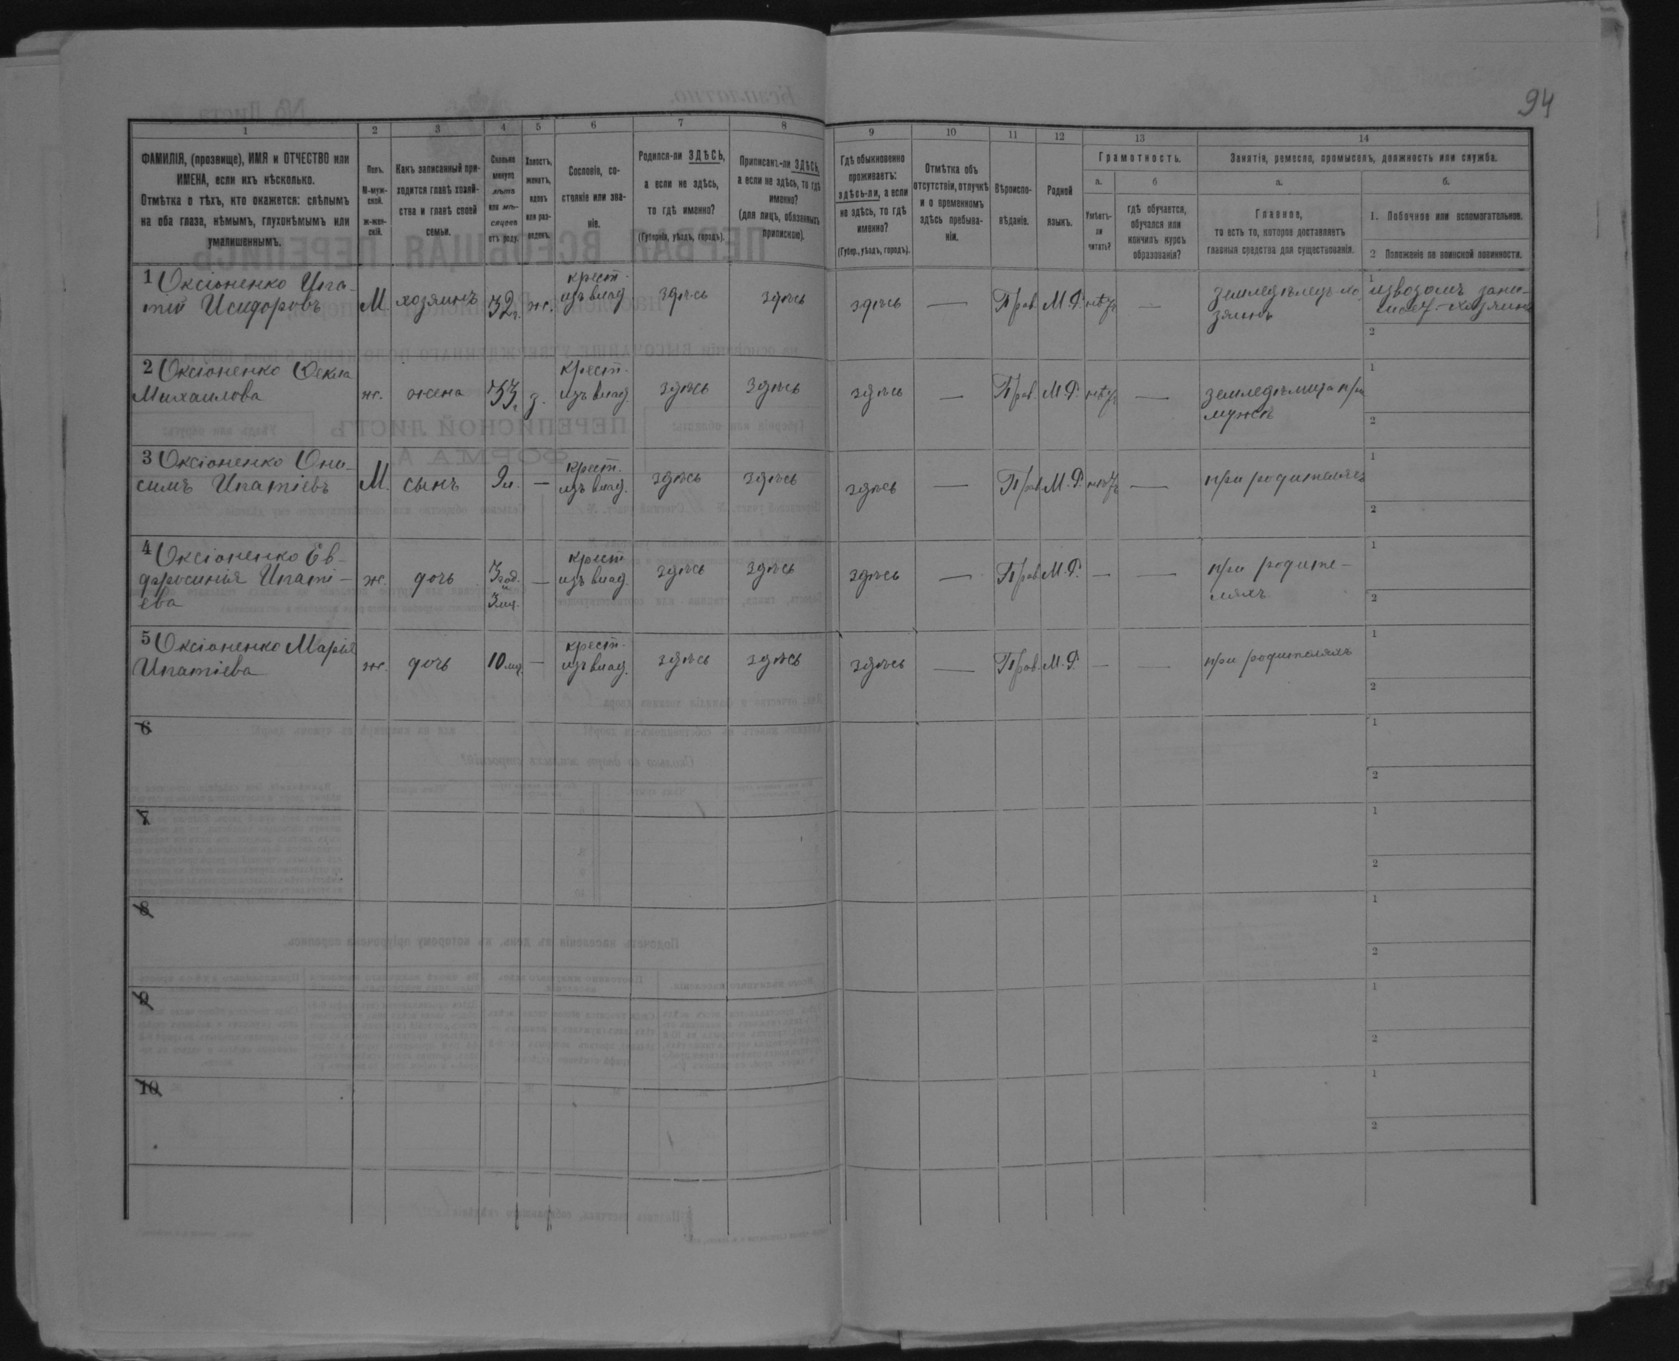 94
1 2 3 4 5 6 7 8 9 10 11 12 13 14
ФАМИЛІЯ, (прозвище), ИМЯ и ОТЧЕСТВО или
ИМЕНА, если ихъ нѣсколько.
Отмѣтка о тѣхъ, кто окажется: слѣпымъ
на оба глаза, нѣмымъ, глухонѣмымъ или
умалишеннымъ.
Полъ.
М-муж-
ской.
ж-жен-
скій.
Какъ записанный при-
ходится главѣ хозяй-
ства и главѣ своей
семьи.
Сколько
минуло
лѣтъ
или мѣ-
сяцевъ
отъ роду.
Холостъ,
женатъ,
вдовъ
или раз-
веденъ.
Сословіе, со-
стояніе или зва-
ніе.
Родился-ли ЗДѢСЬ,
а если не здѣсь,
то гдѣ именно?
(Губернія, уѣздъ, городъ).
Приписанъ-ли ЗДѢСЬ,
а если не здѣсь, то гдѣ
именно?
(для лицъ, обязанныхъ
припиской).
Гдѣ обыкновенно
проживаетъ:
здѣсь-ли, а если
не здѣсь, то гдѣ
именно?
(Губер., уѣздъ, городъ).
Отмѣтка объ
отсутствіи, отлучкѣ
и о временномъ
здѣсь пребыва-
ніи.
Вѣроиспо-
вѣданіе.
Родной
языкъ.
Грамотность.
а.
Умѣетъ-
ли
читать?
б
гдѣ обучается,
обучался или
кончилъ курсъ
образованія?
Занятіе, ремесло, промыселъ, должность или служба.
а.
Главное,
то есть то, которое доставляетъ
главныя средства для существованія.
б.
1. Побочное или вспомогательное.
2 Положеніе по воинской повинности.
1 Оксіоненко Ипа-
тій Исидоровъ
М
хозяинъ
32 г.
ж.
крест.
изъ влад.
здѣсь
здѣсь
здѣсь
—
Прав.
М. Р.
нѣтъ
—
земледѣлецъ-хо
зяинъ
1 извозомъ зани-
2
2 Оксіоненко Фекла
Михаилова
ж.
жена
33 г.
з.
крест.
изъ влад
здѣсь
здѣсь
здѣсь
—
Прав.
М. Р.
нѣтъ
—
при
мужѣ
1
2
3 Оксіоненко Они-
симъ Ипатіевъ
М.
сынъ
9 л.
—
крест.
изъ влад.
здѣсь
здѣсь
здѣсь
—
Прав
М. Р.
нѣтъ
—
при родителяхъ
1
2
4 Оксіоненко Ев-
фросинія Ипаті-
ева
ж.
дочь
3 год.
и
3 мѣц.
—
крест
изъ влад.
здѣсь
здѣсь
здѣсь
—
Прав.
М. Р.
—
—
при родите-
ляхъ
1
2
5 Оксіоненко Марія
Ипатіева
ж.
дочь
10 мѣц.
—
крест.
изъ влад.
здѣсь
здѣсь
здѣсь
—
Прав.
М. Р.
—
—
при родителяхъ
1
2
6
1
2
7
1
2
8
1
2
9
1
2
10
1
2